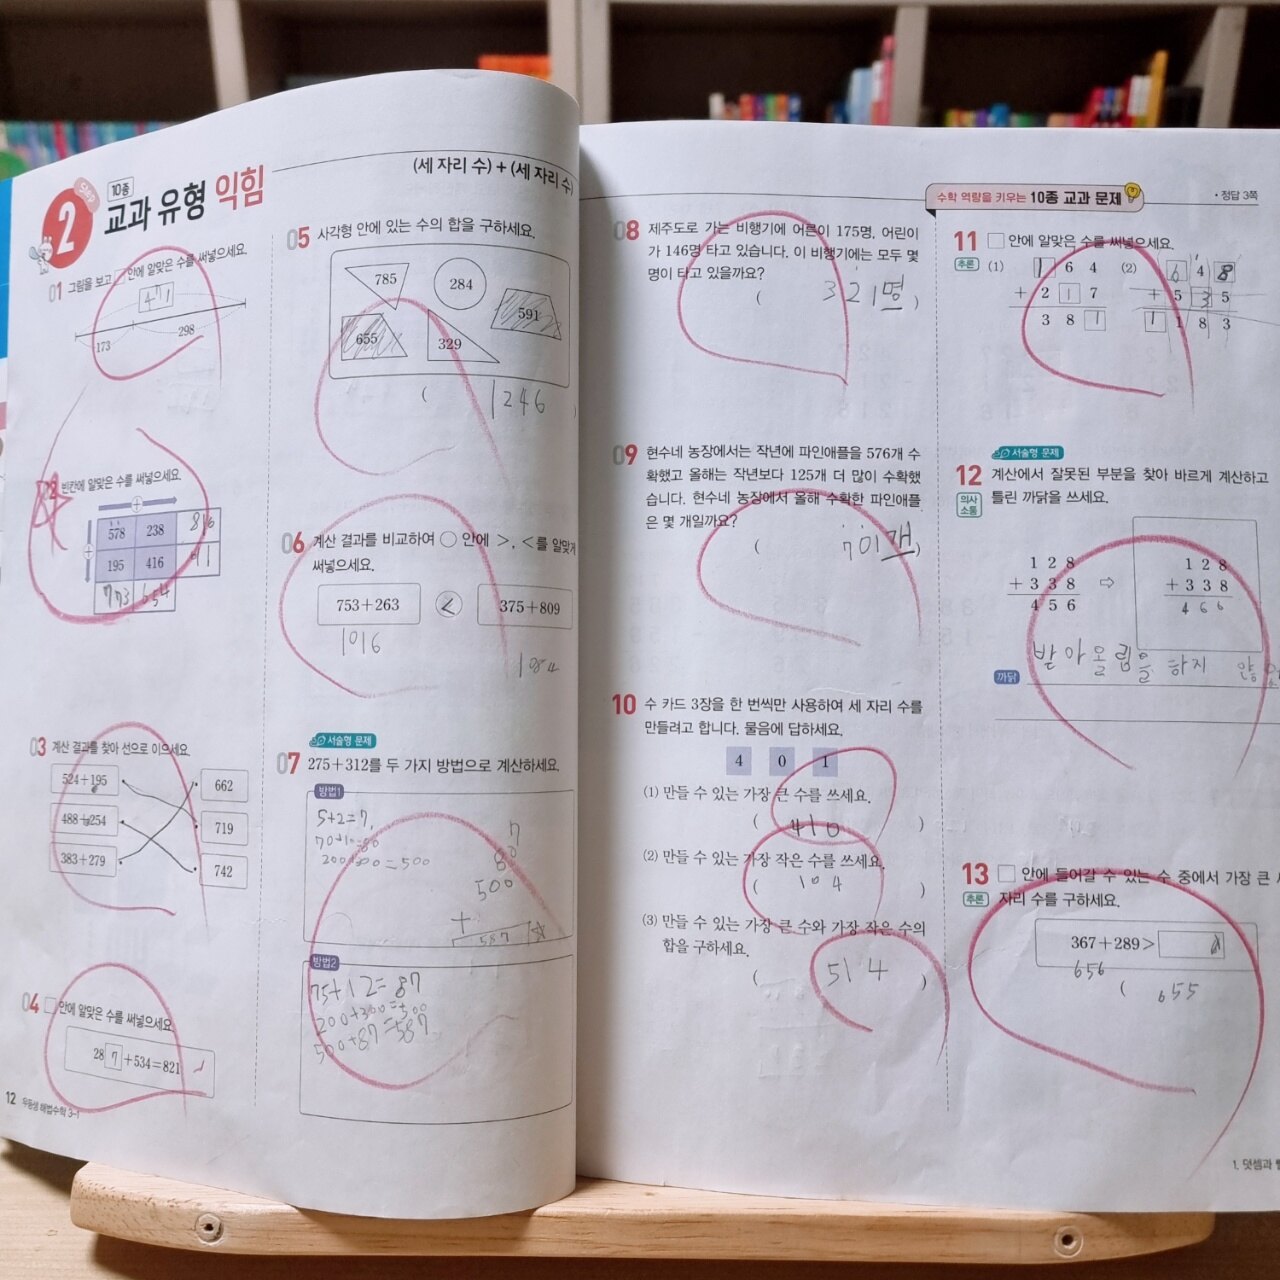 Step
2
10종
교과 유형 익힘
(세 자리 수)+(세 자리 수)
01 그림을 보고 □ 안에 알맞은 수를 써넣으세요.
471
173
298
2 빈칸에 알맞은 수를 써넣으세요.
+
+
578 238 816
195 416
773 654
03 계산 결과를 찾아 선으로 이으세요.
524+195 662
488+254 719
383+279 742
04 □ 안에 알맞은 수를 써넣으세요.
28 7 +534=821
12 우등생 해법수학 3-1
05 사각형 안에 있는 수의 합을 구하세요.
785
284
591
655
329
( 1246 )
06 계산 결과를 비교하여 ○ 안에 >, <를 알맞게
써넣으세요.
753+263 < 375+809
1016
서술형 문제
07 275+312를 두 가지 방법으로 계산하세요.
방법1
5+2=7,
70+10=80
200+300=500
7
80
500
+
587
방법2
75+12=87
200+300=500
500+87=587
수학 역량을 키우는 10종 교과 문제
• 정답 3쪽
08 제주도로 가는 비행기에 어른이 175명, 어린이
가 146명 타고 있습니다. 이 비행기에는 모두 몇
명이 타고 있을까요?
( 321명 )
09 현수네 농장에서는 작년에 파인애플을 576개 수
확했고 올해는 작년보다 125개 더 많이 수확했
습니다. 현수네 농장에서 올해 수확한 파인애플
은 몇 개일까요?
( 701개 )
10 수 카드 3장을 한 번씩만 사용하여 세 자리 수를
만들려고 합니다. 물음에 답하세요.
4 0 1
(1) 만들 수 있는 가장 큰 수를 쓰세요.
( 410 )
(2) 만들 수 있는 가장 작은 수를 쓰세요.
( 104 )
(3) 만들 수 있는 가장 큰 수와 가장 작은 수의
합을 구하세요.
( 514 )
11 □ 안에 알맞은 수를 써넣으세요.
추론
(1) 1 6 4
+ 2 1 7
3 8 1
(2) 6 4 8
+ 5 3 5
1 1 8 3
서술형 문제
12 계산에서 잘못된 부분을 찾아 바르게 계산하고
의사
소통
틀린 까닭을 쓰세요.
1 2 8
+ 3 3 8
4 5 6
⇨
1 2 8
+ 3 3 8
4 6 6
까닭
받아올림을 하지
13 □ 안에 들어갈 수 있는 수 중에서 가장 큰
추론
자리 수를 구하세요.
367+289>
656
( 655
1. 덧셈과